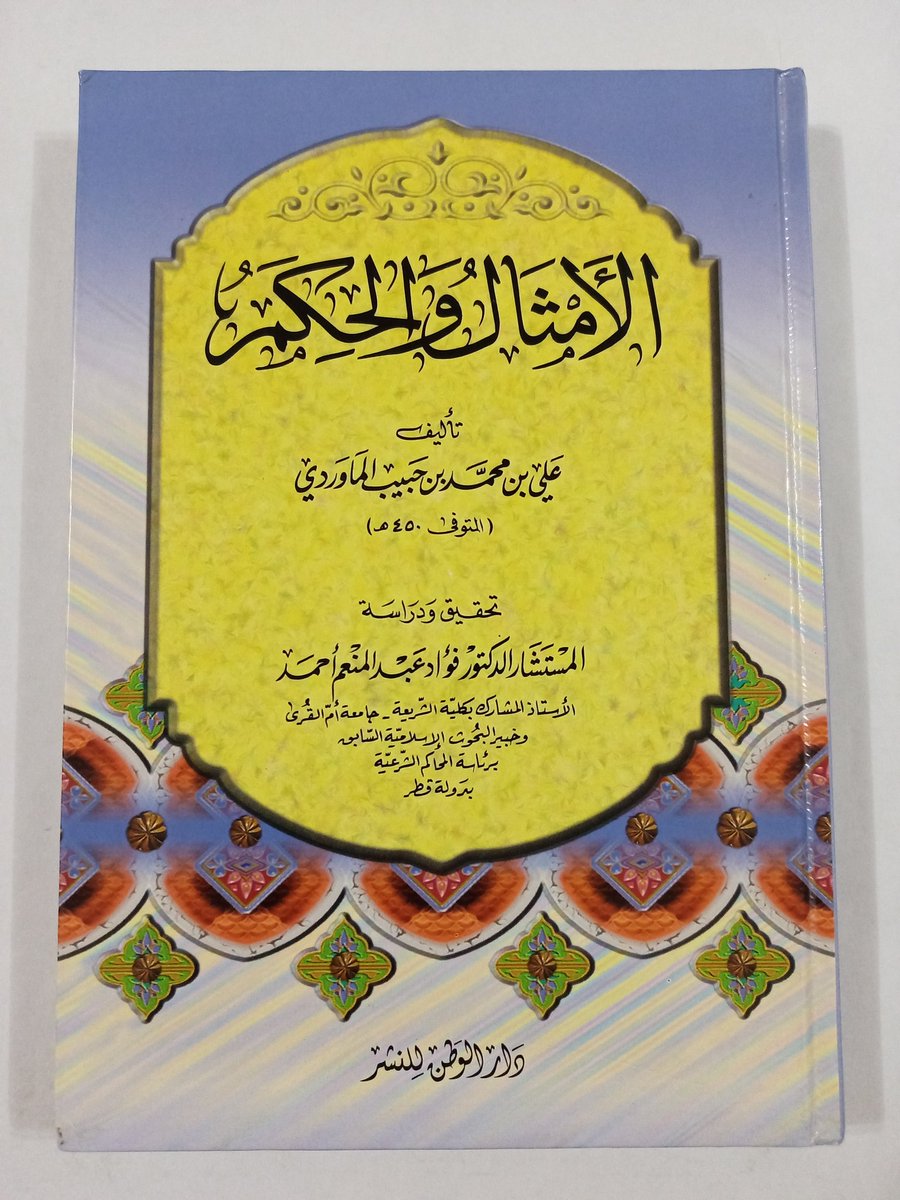 الأَمْثَالُ وَالحِكَمُ
تأليف
عَلي بن محمَّد بن حَبيب المَاوَردي
(المتوفى ٤٥٠ هـ)
تحقيق وَدرَاسَة
المسْتَشَار الدكتوْر فؤاد عَبْد المنعم أحمَد
الأستاذ المشارك بكليّة الشّريعة - جامعة أمّ القُرى
وخبير البحُوث الإسلاميّة السّابق
برئاسة المحاكم الشّرعيّة
بدَولة قطر
دَار الوَطن لِلنشر